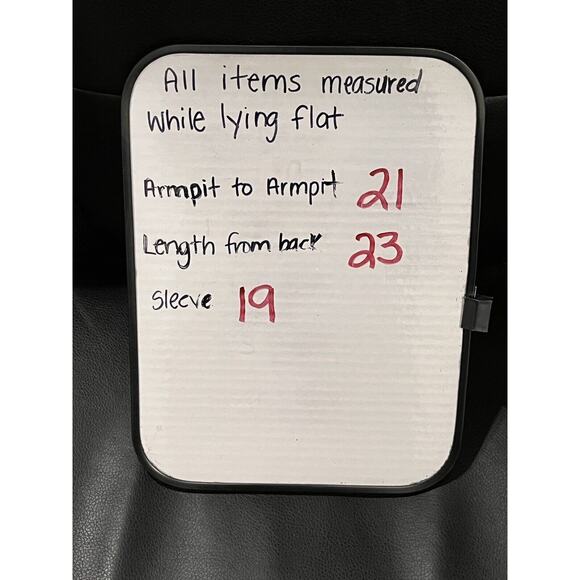 All items measured
while lying flat
Armpit to Armpit 21
Length from back 23
Sleeve 19